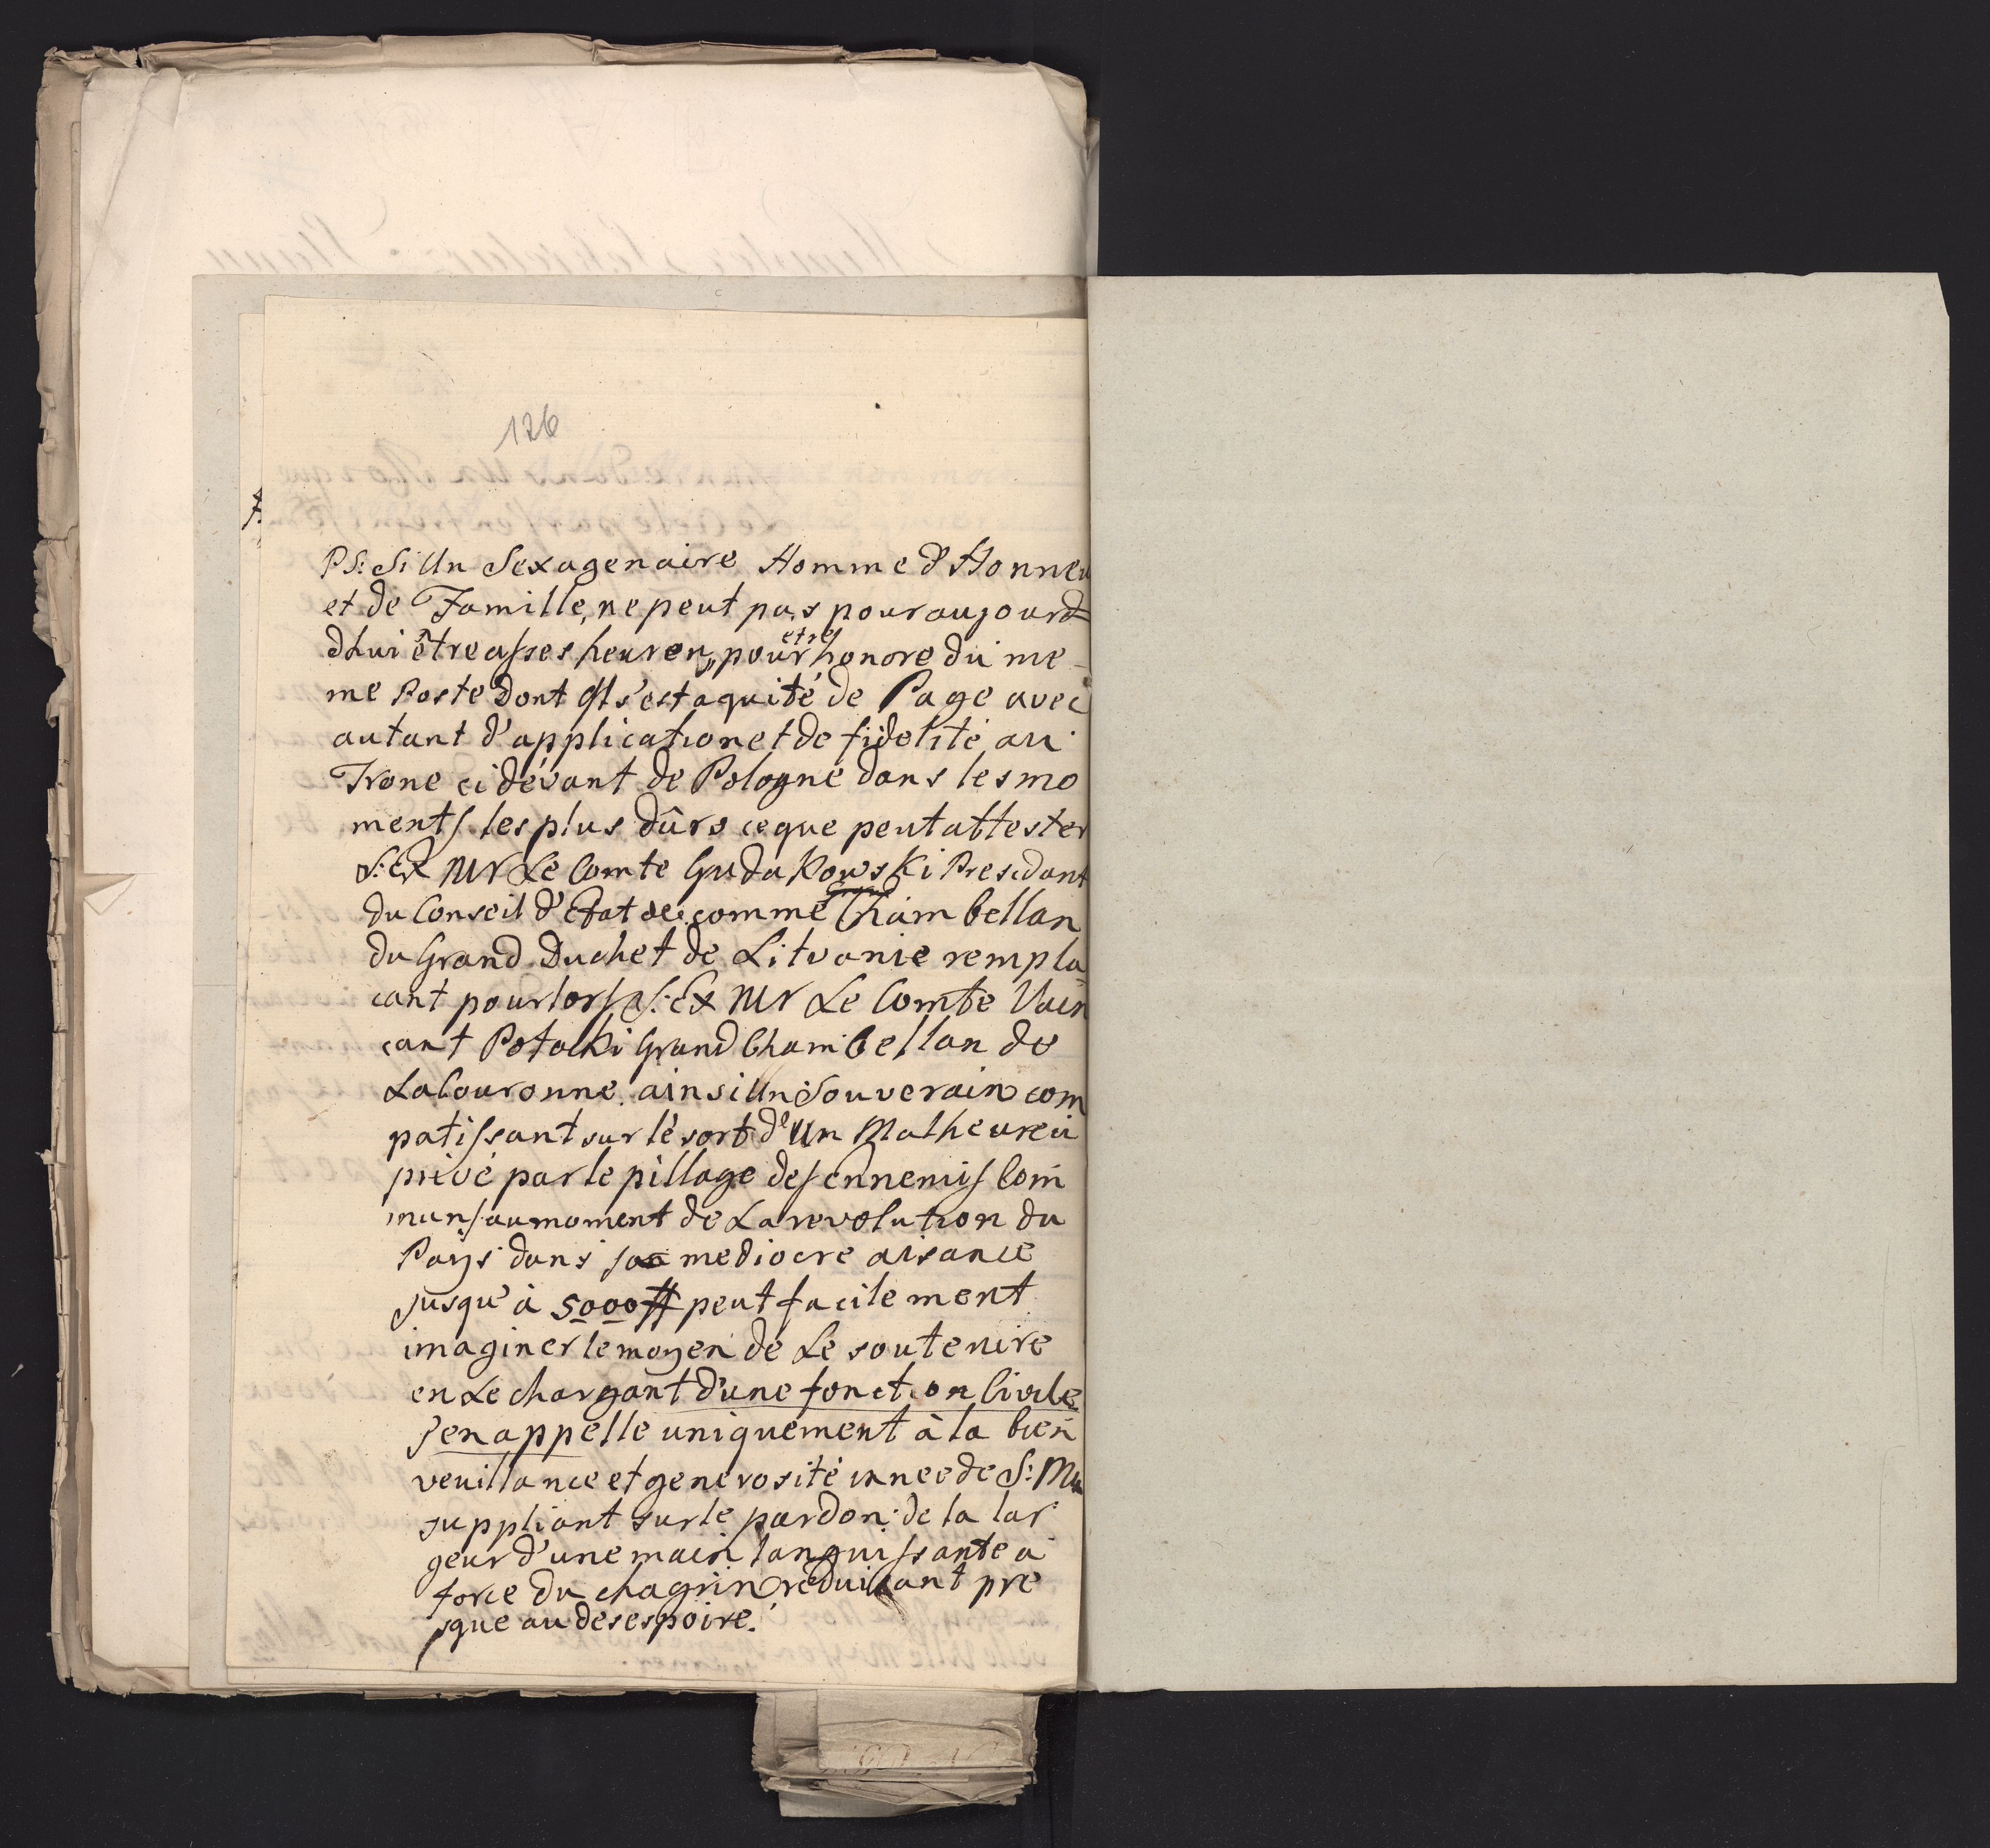 126
PS: Si Un Sexagenaire Homme d'Honneu
et de Famille, ne peut pas pour aujourd=
dhui être asses heureu, pour être honore du me-
me Poste dont Il s'est aquité de Page avec
autant d'application et de fidelité au
Trone ci dévant de Pologne dans les mo
ments les plus dûrs ce que peut attester
S: Ex Mr Le Comte Gudakowski Presidant
du Conseil d'Etat comme Chambellan
du Grand Duchet de Litvanie rempla
cant pour lors S: Ex Mr Le Comte Vain
cant Potocki Grand Chambellan de
La Couronne. ainsi Un Souverain com
patissant sur lé sort d'Un Malheureu
privé par le pillage des ennemis Com
muns au moment de La revolution du
Pays dans sa mediocre aisance
jusqu'à 5000 # peut facilement
imaginer le moyen dé Le soutenire
en Le chargant d'une fonction Civile
j'en appelle uniquement à la bien
veuillance et generosité innee de S: Ma
suppliant sur le pardon de la lar
geur d'une main languissante a
force du chagrin reduisant pre
sque au desespoire.